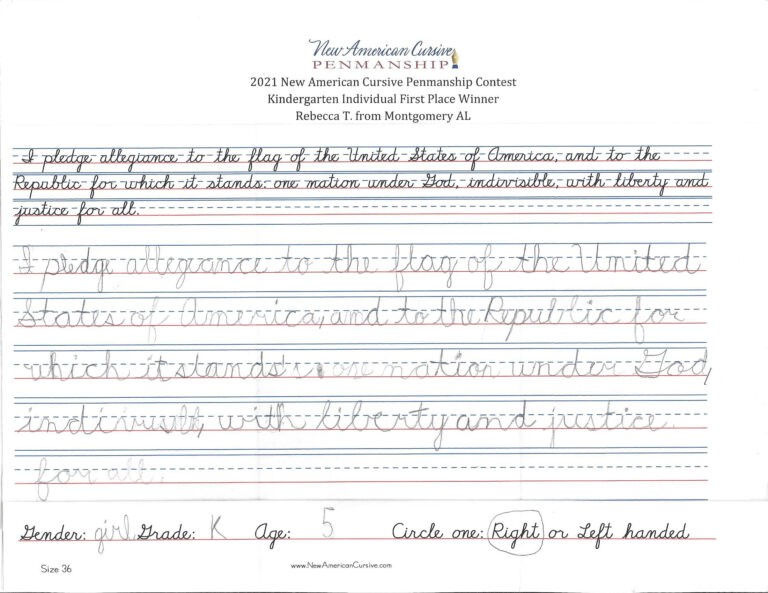 New American Cursive
PENMANSHIP
2021 New American Cursive Penmanship Contest
Kindergarten Individual First Place Winner
Rebecca T. from Montgomery AL
I pledge allegiance to the flag of the United States of America, and to the
Republic for which it stands: one nation under God, indivisible, with liberty and
justice for all.
I pledge allegiance to the flag of the United
States of America, and to the Republic for
which it stands: one nation under God,
with liberty and justice
for all.
Gender: girl Grade: K Age: 5 Circle one: Right or Left handed
Size 36 www.NewAmericanCursive.com